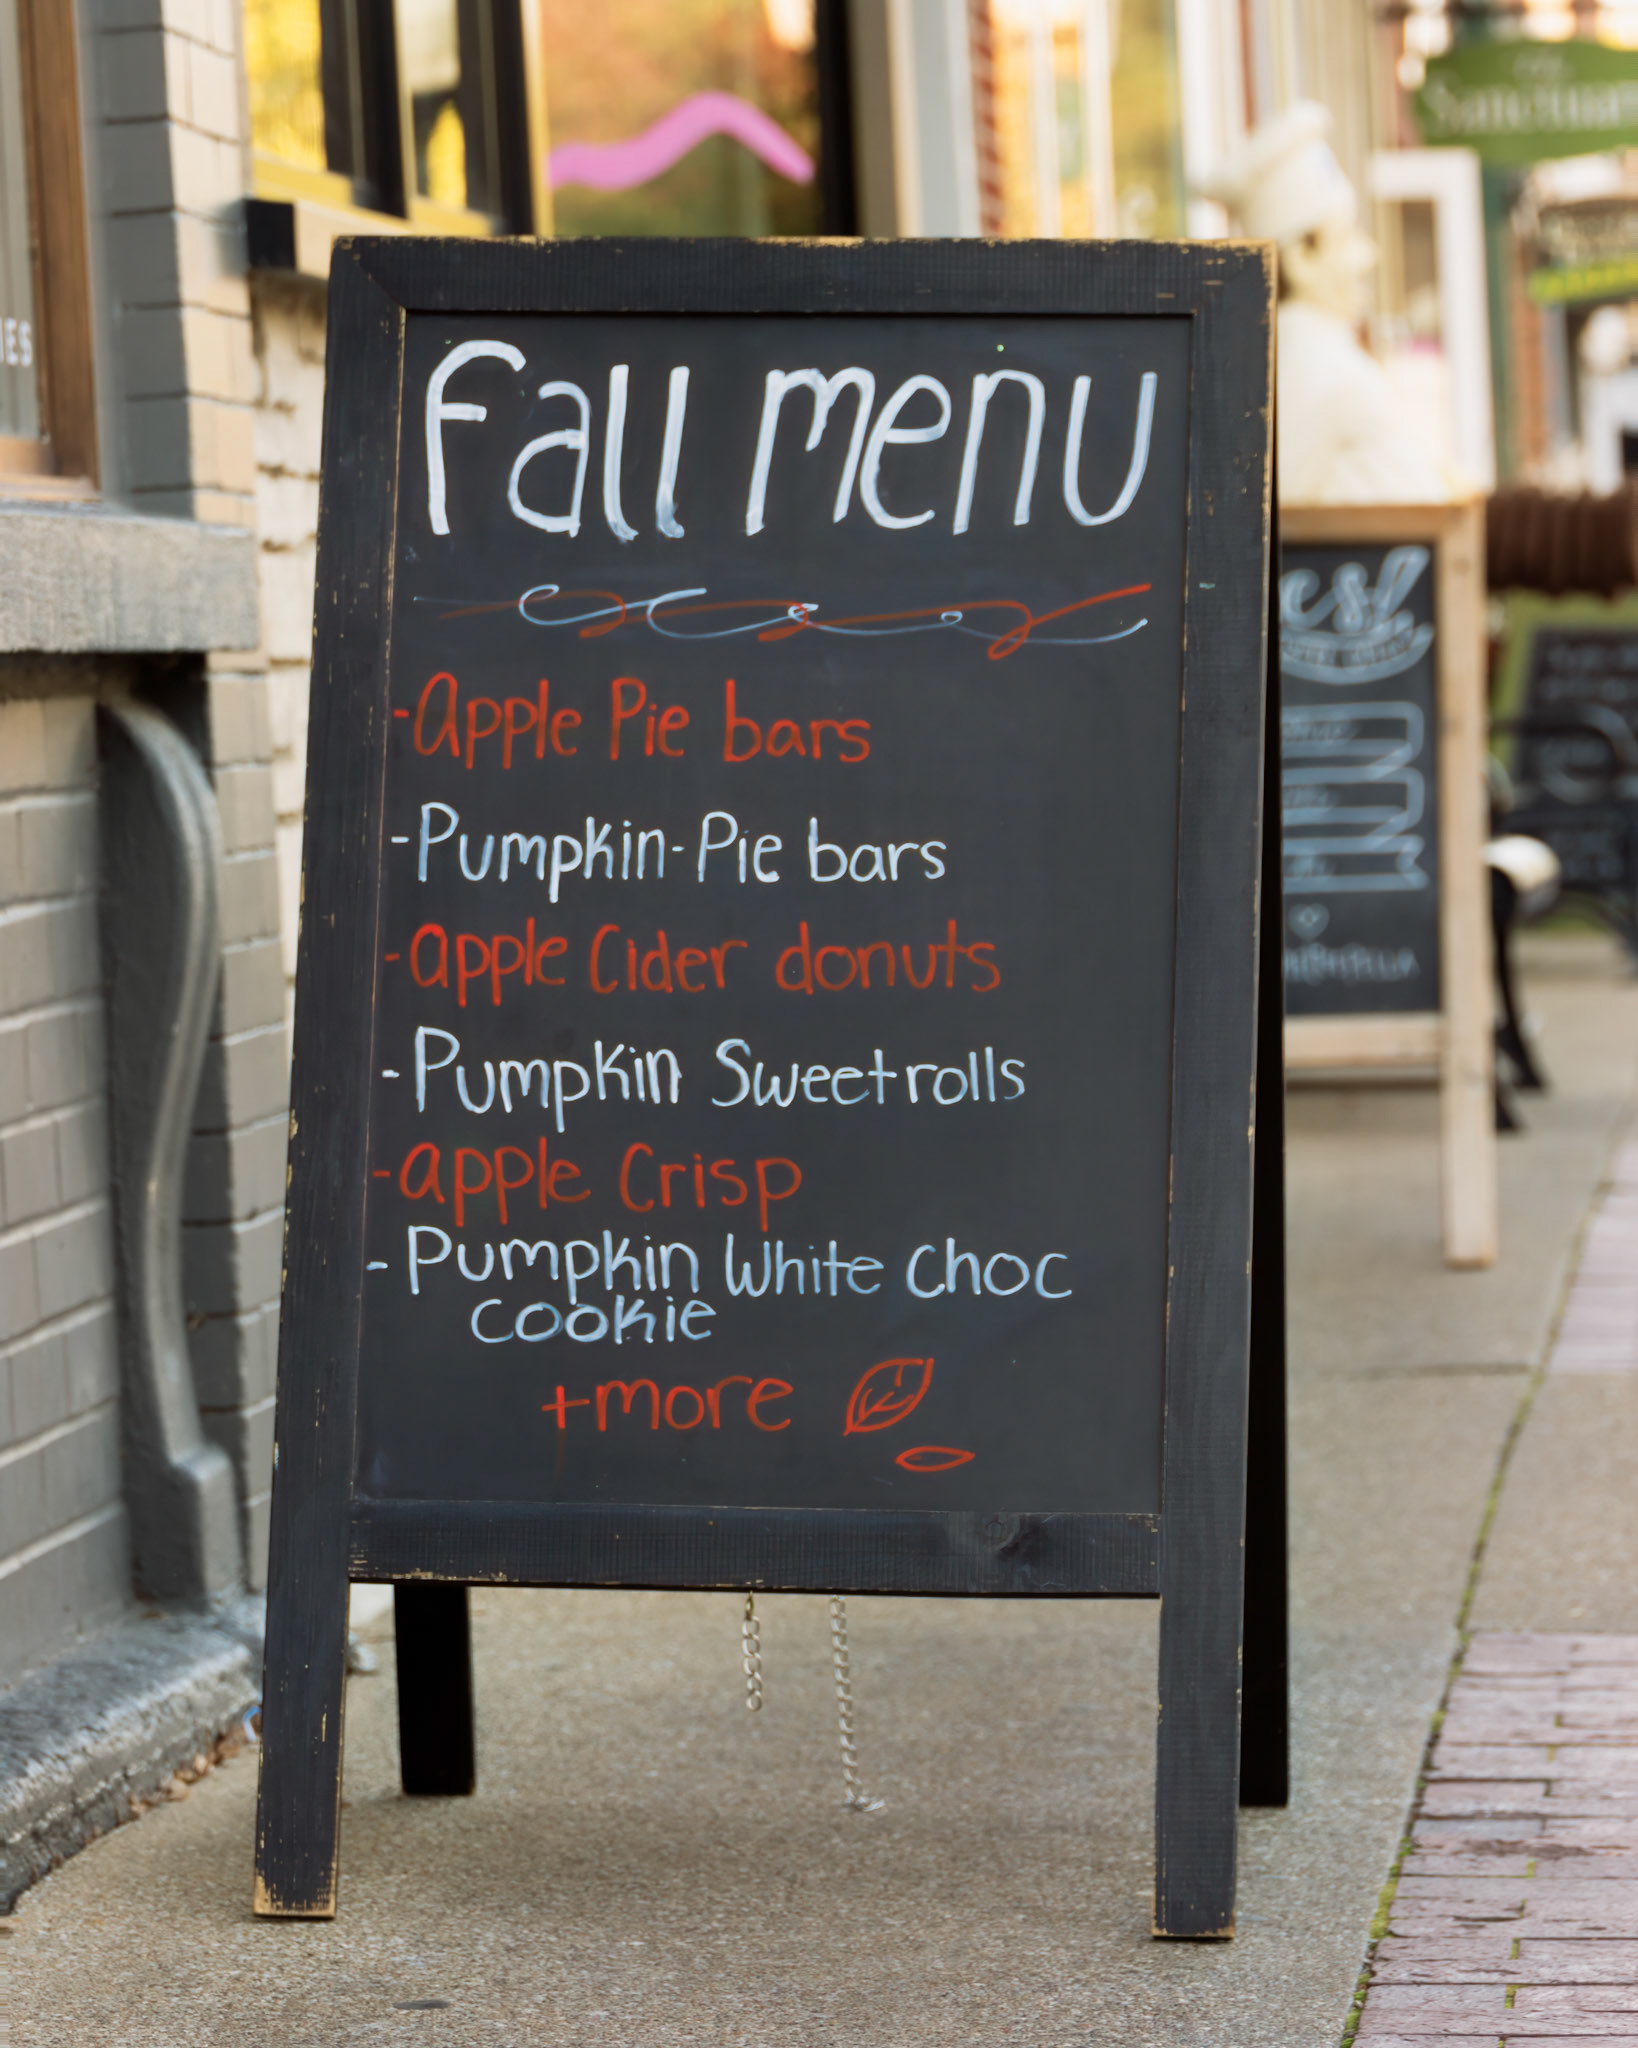 Fall menu
-Apple Pie bars
-Pumpkin-Pie bars
-apple Cider donuts
-Pumpkin Sweetrolls
-apple Crisp
-Pumpkin White Choc
cookie
+more
IES